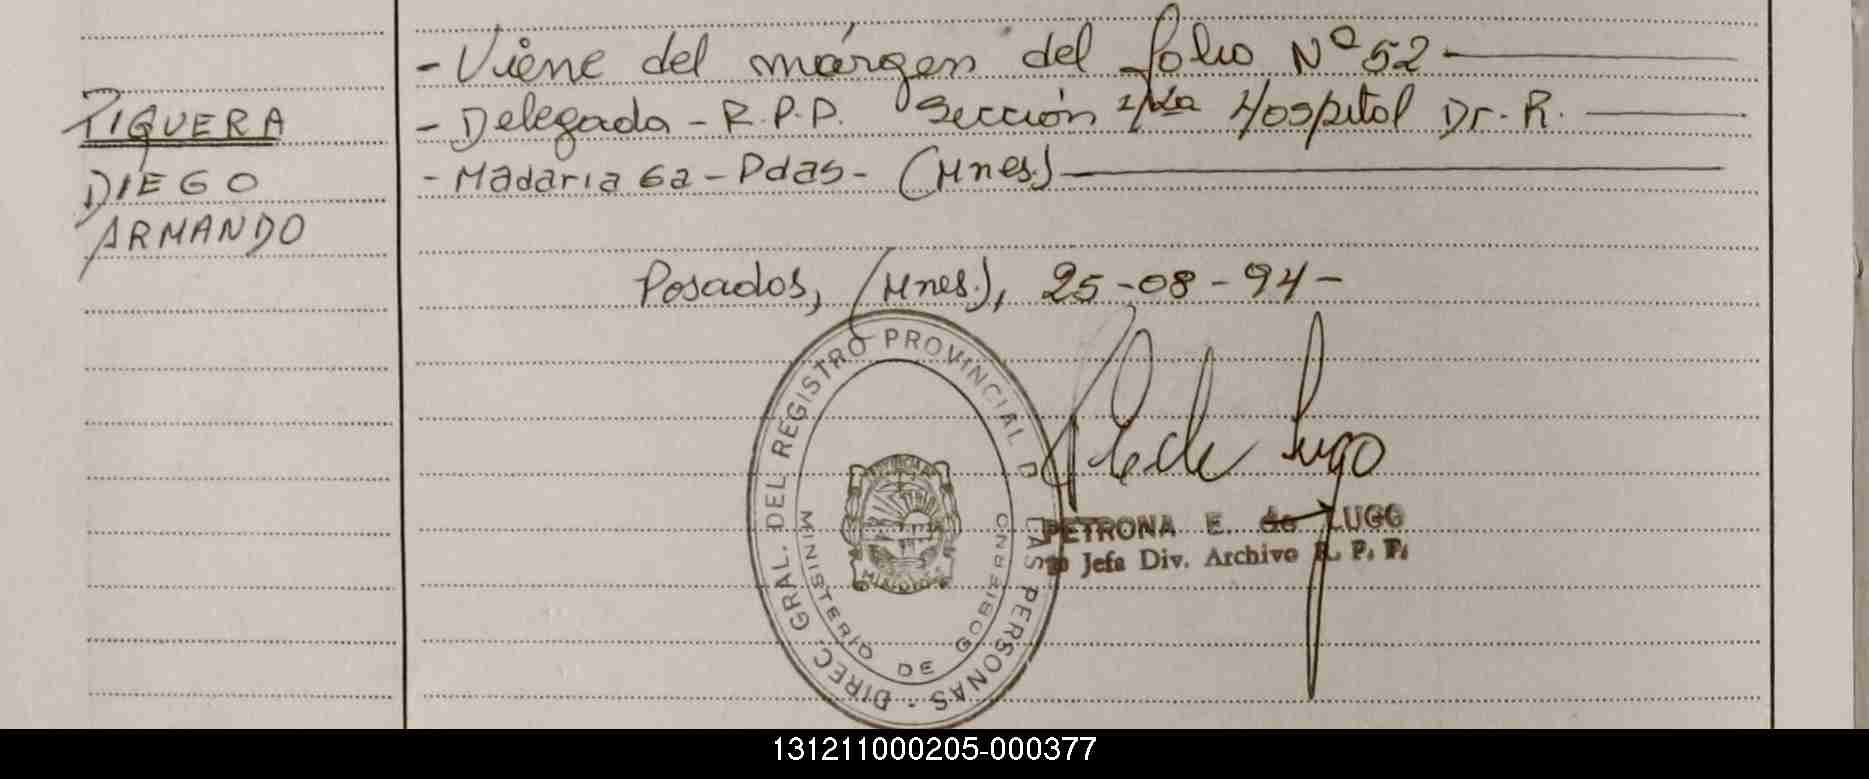 - Viene del márgen del folio Nº 52
- Delegada - R.P.P. Sección Hospital Dr. R.
- Madariaga - Pdas - (Mnes.)
PIQUERA
DIEGO
ARMANDO
Posadas, (Mnes.), 25-08-94-
DIREC. GRAL. DEL REGISTRO PROVINCIAL D LAS PERSONAS -
MINISTERIO DE GOBIERNO
MISIONES
de Lugo
PETRONA E. de LUGO
Jefa Div. Archivo R. P. P.
131211000205-000377